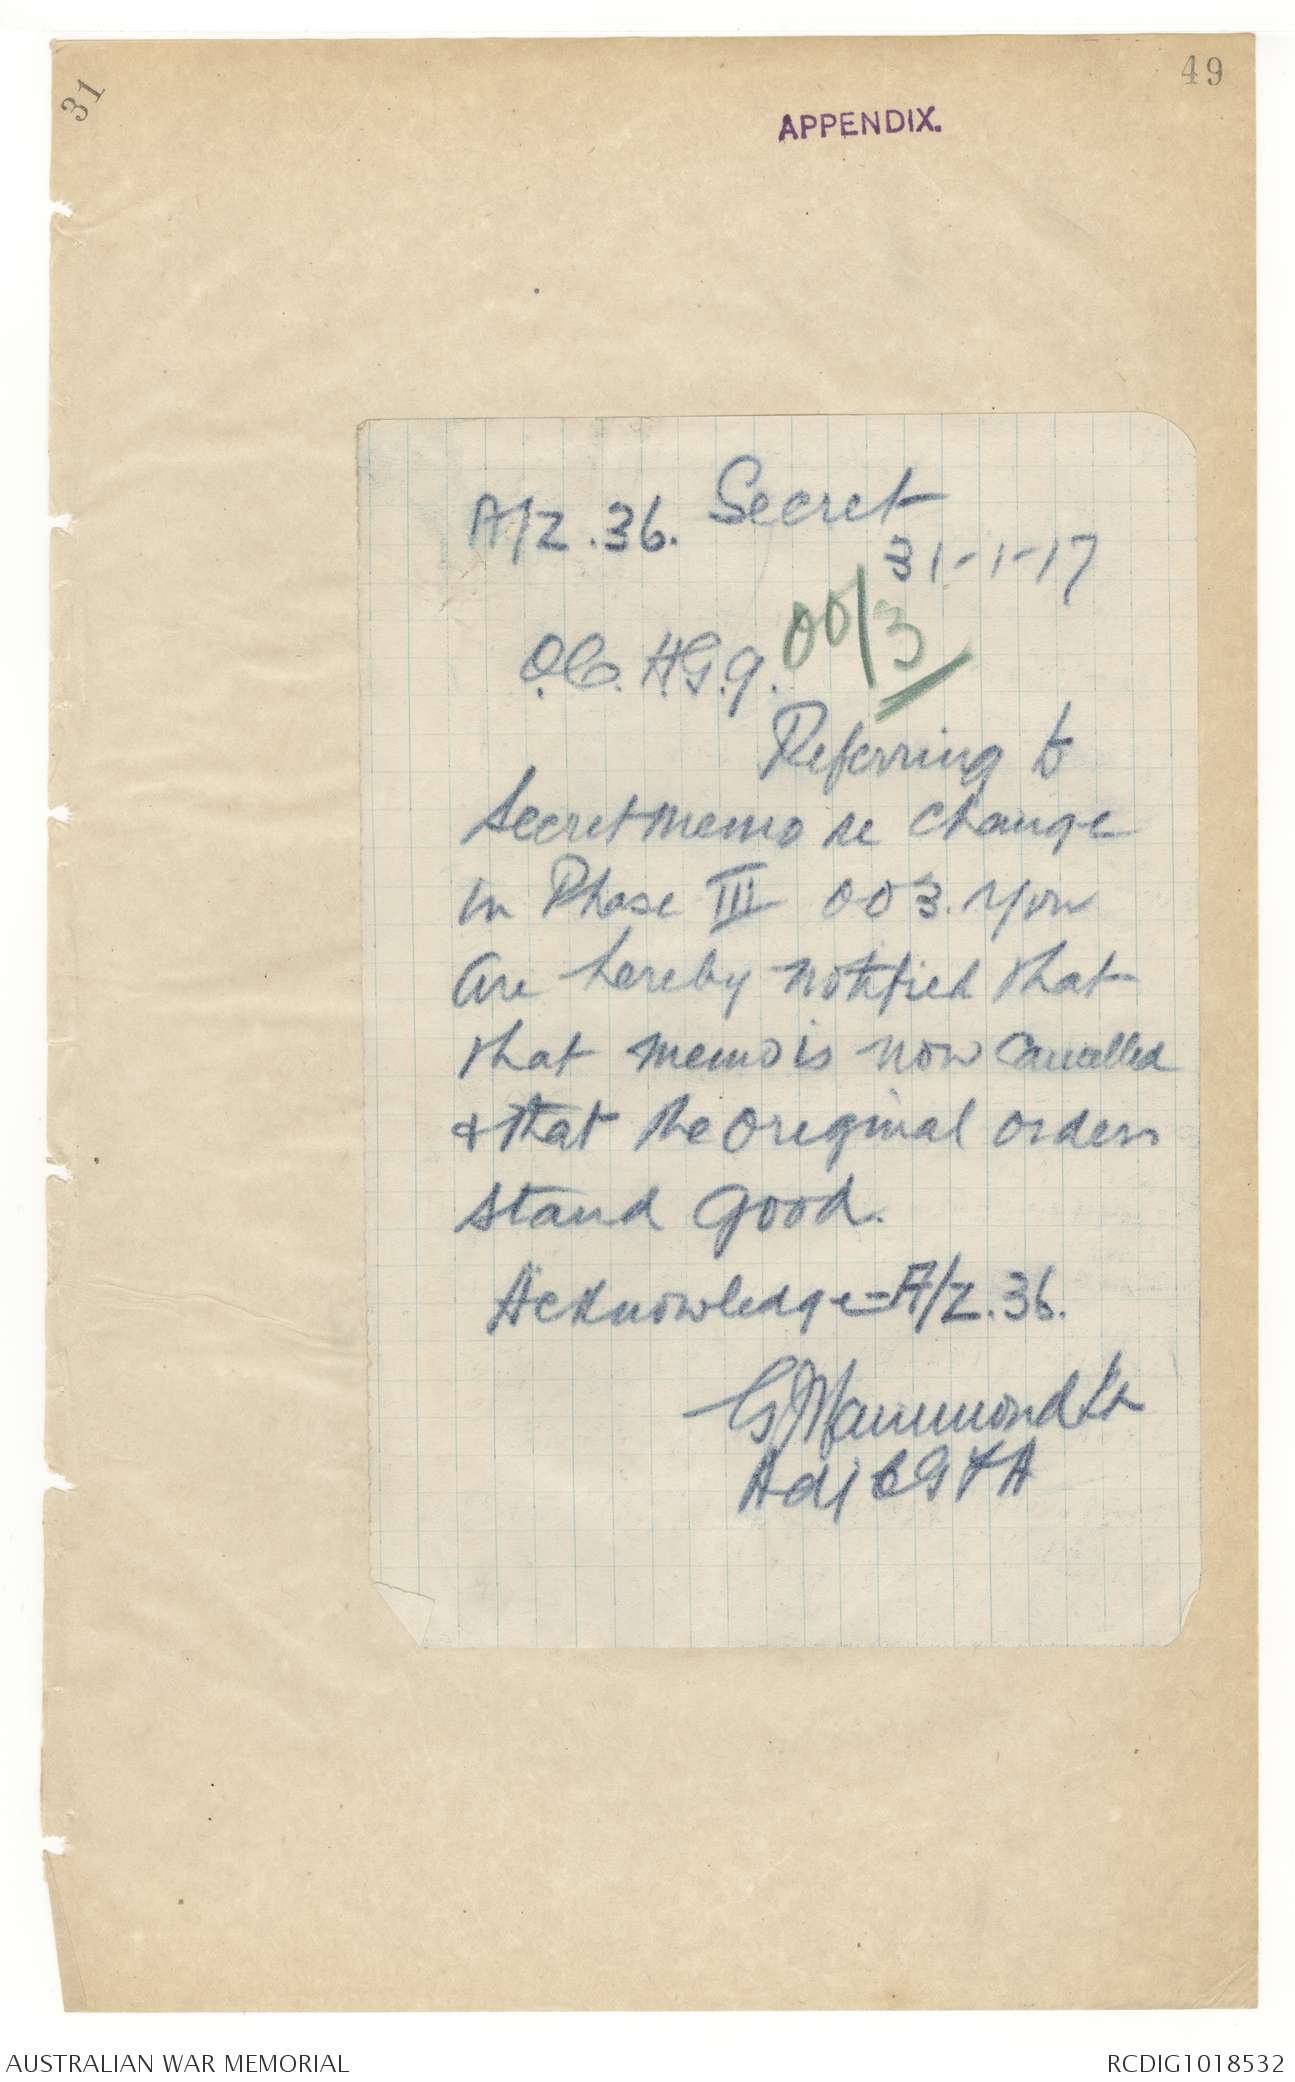 31
49
APPENDIX.
Secret
A/Z.36.
31-1-17
OO/3
O.C. H.G.9.
Referring to
Secret memo re change
in Phase III OO3. You
are hereby notified that
that memo is now cancelled
& that the original orders
stand good.
Acknowledge = A/Z.36.
Hammond Lt
Adj
AUSTRALIAN WAR MEMORIAL
RCDIG1018532